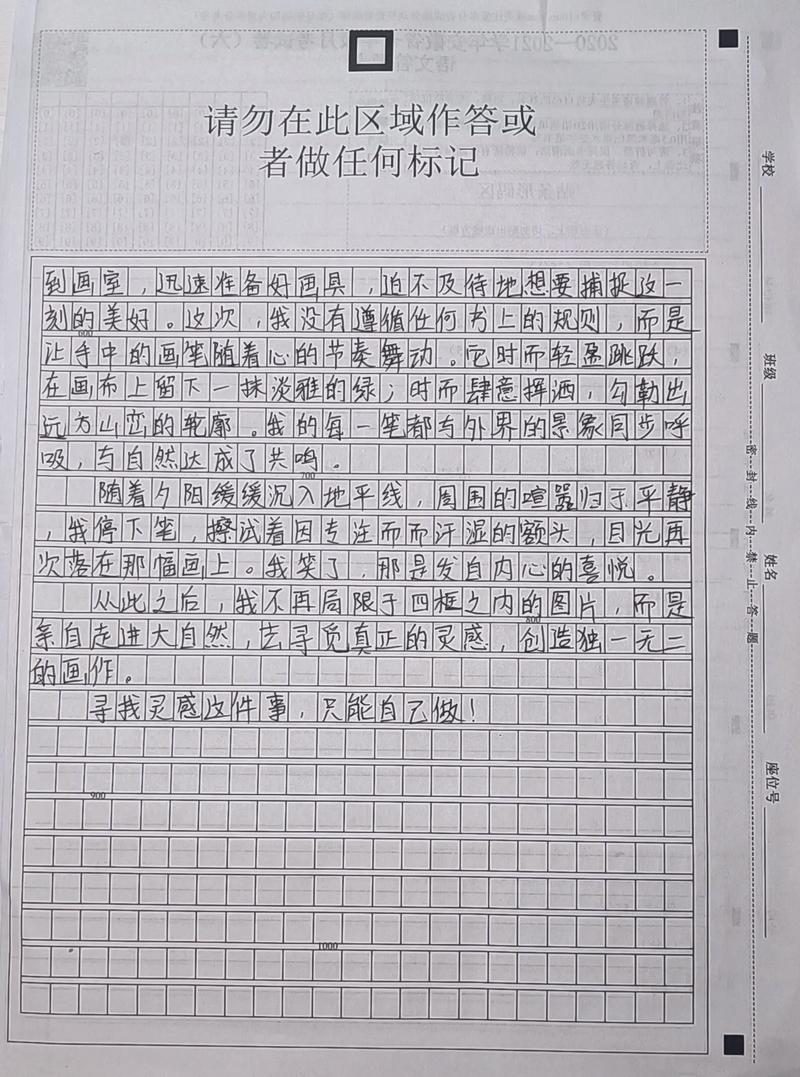 请勿在此区域作答或
者做任何标记
到画室，迅速准备好画具，迫不及待地想要捕捉这一
刻的美好。这次，我没有遵循任何书上的规则，而是
600
让手中的画笔随着心的节奏舞动。它时而轻盈跳跃，
在画布上留下一抹淡雅的绿；时而肆意挥洒，勾勒出
远方山峦的轮廓。我的每一笔都与外界的景象同步呼
吸，与自然达成了共鸣。
700
随着夕阳缓缓沉入地平线，周围的喧嚣归于平静
，我停下笔，擦试着因专注而而汗湿的额头，目光再
次落在那幅画上。我笑了，那是发自内心的喜悦。
从此之后，我不再局限于四框之内的图片，而是
800
亲自走进大自然，去寻觅真正的灵感，创造独一无二
的画作。
寻找灵感这件事，只能自己做！
900
1000
学校
班级
姓名
座位号
密封线内禁止答题